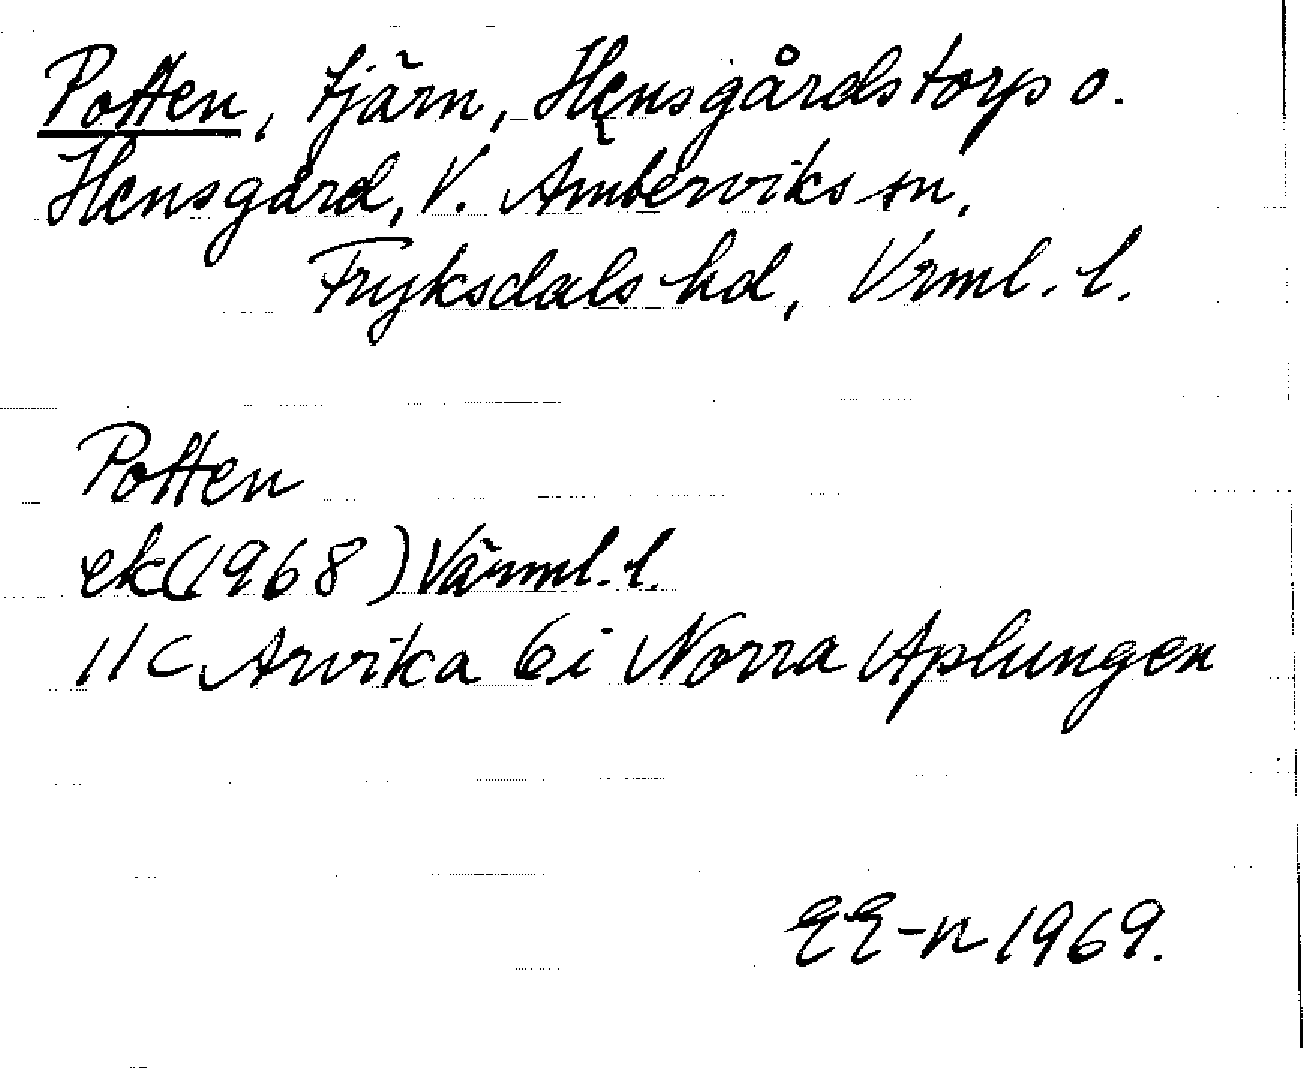 Potten, tjärn, Hensgårdstorp o.
Hensgård, V. Ämterviks sn,
Fryksdals hd, Vrml. l.
Potten
ek (1968) Värml. l.
11C Arvika 6i Norra Aplungen
EE-n 1969.